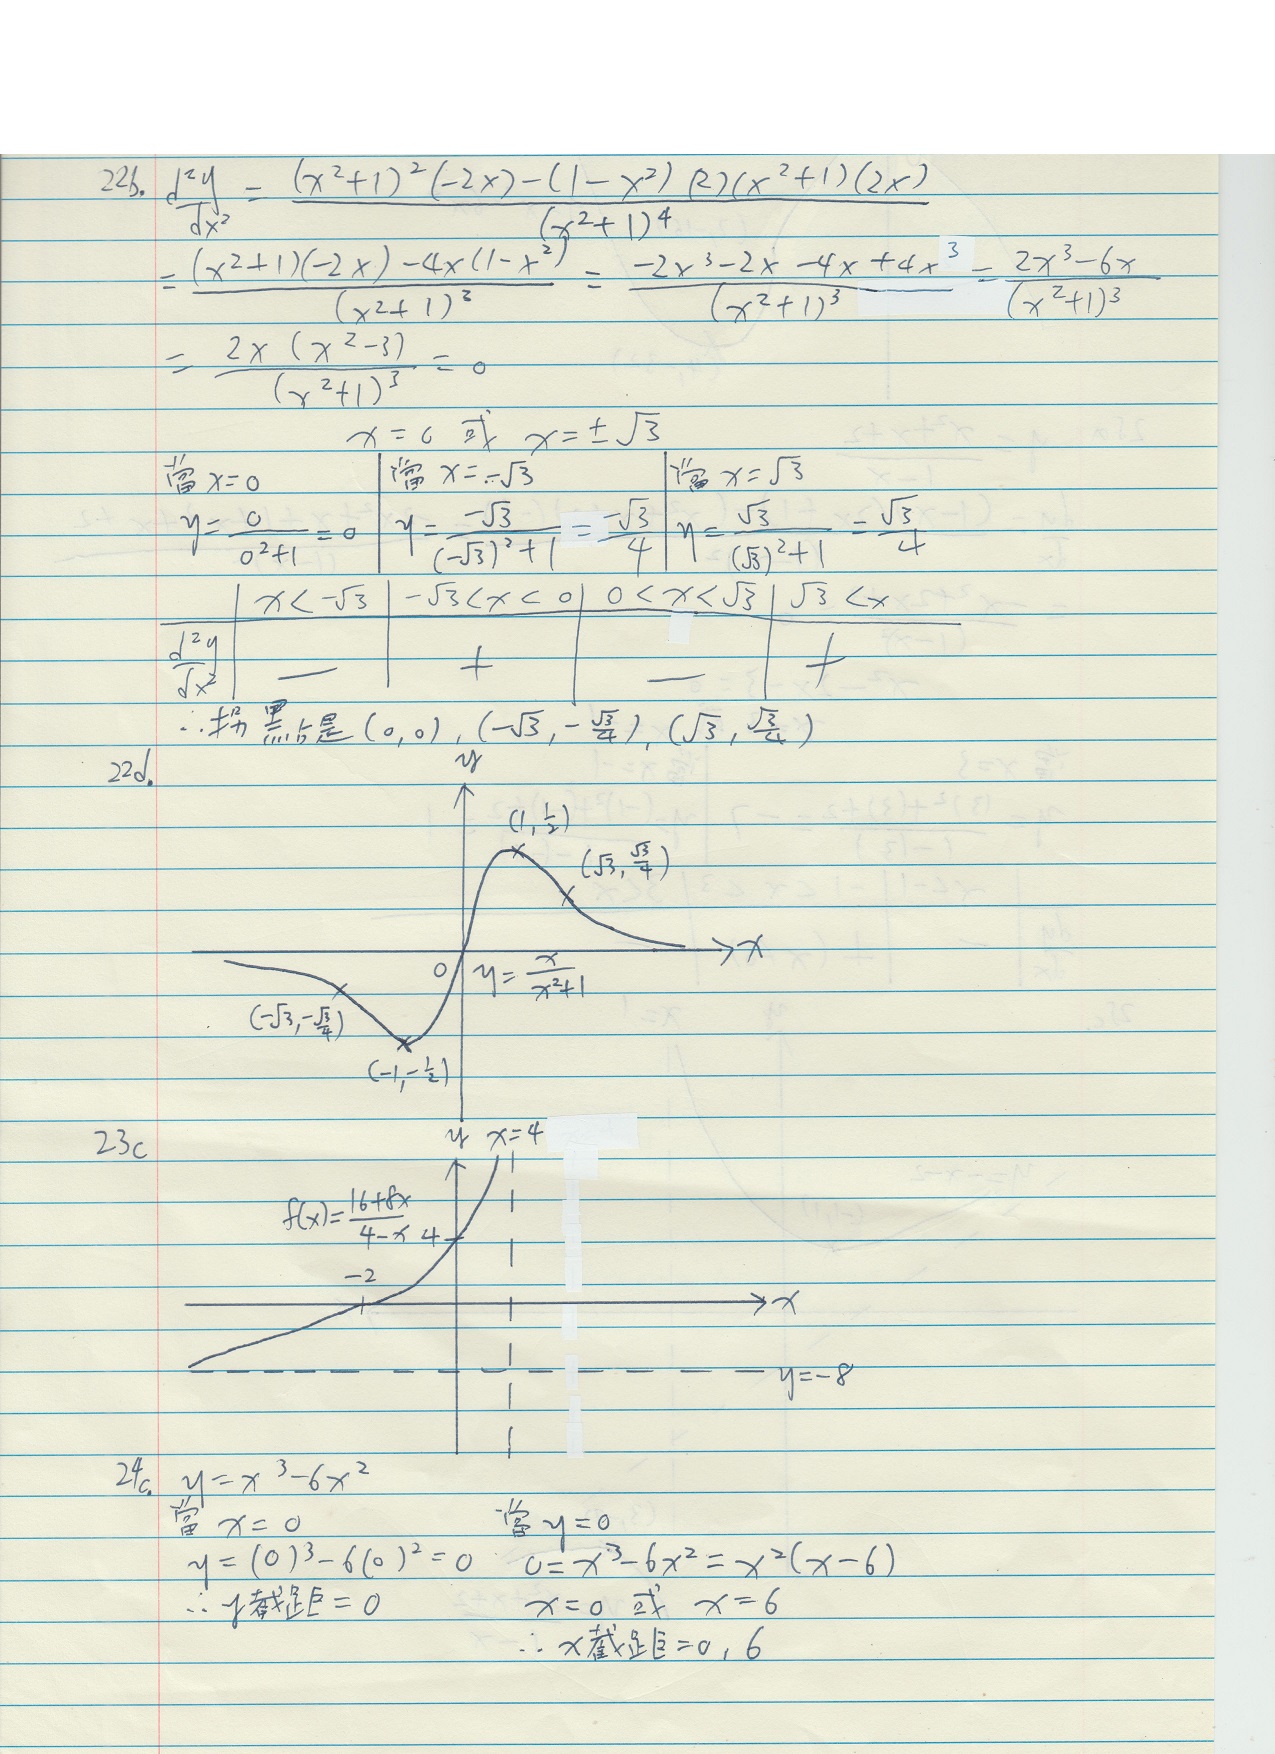 22b. d²y/dx² = (x²+1)²(-2x)-(1-x²)(2)(x²+1)(2x)/(x²+1)⁴
= (x²+1)(-2x)-4x(1-x²)/(x²+1)³ = -2x³-2x-4x+4x³/(x²+1)³ = 2x³-6x/(x²+1)³
= 2x(x²-3)/(x²+1)³ = 0
x=0 或 x=±√3
當 x=0 當 x=-√3 當 x=√3
y=0/0²+1=0 y=-√3/(-√3)²+1=-√3/4 y=√3/(√3)²+1=√3/4
x<-√3 -√3<x<0 0<x<√3 √3<x
d²y/dx² — + — +
∴拐點是(0,0), (-√3,-√3/4), (√3,√3/4)
22d.
y
(1,1/2)
(√3,√3/4)
x
0 y=x/x²+1
(-√3,-√3/4)
(-1,-1/2)
23c
y x=4
f(x)=16+8x/4-x 4
-2
x
y=-8
24c. y=x³-6x²
當 x=0 當 y=0
y=(0)³-6(0)²=0 0=x³-6x²=x²(x-6)
∴y截距=0 x=0 或 x=6
∴x截距=0, 6